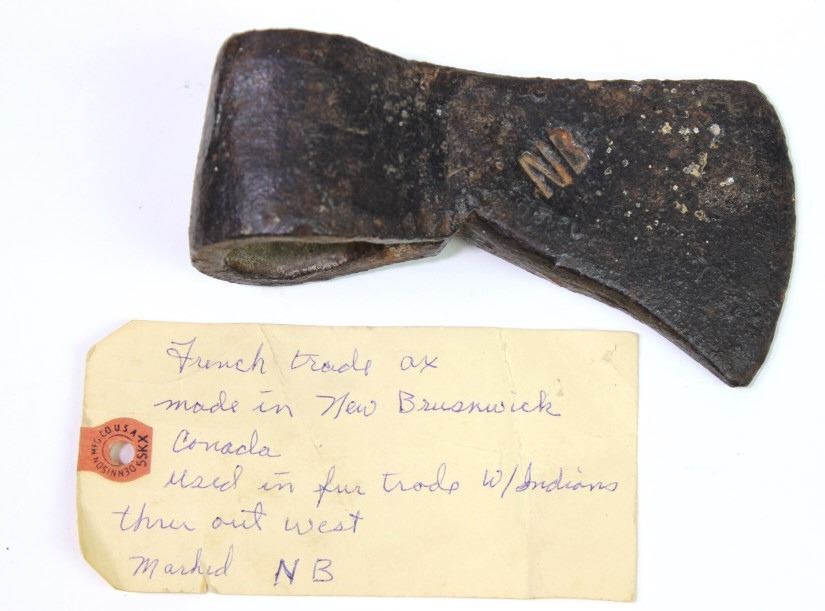 NB
French trade ax
made in New Brusnwick
Canada
used in fur trade W/Indians
thru out west
Marked NB
DENNISON MFG.CO U.S.A.
5SKX